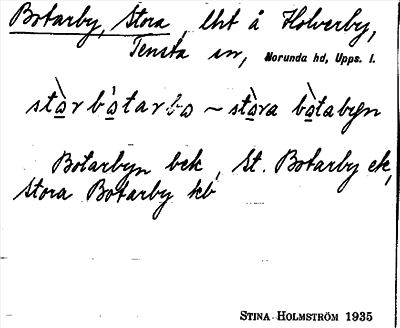 Botarby, Stora lht å Holverby,
Tensta sn, Norunda hd, Upps. l.
stòr bòtarbo ~ stòra bòtabyn
Botarbyn bek, St. Botarby ek,
Stora Botarby kb
STINA HOLMSTRÖM 1935